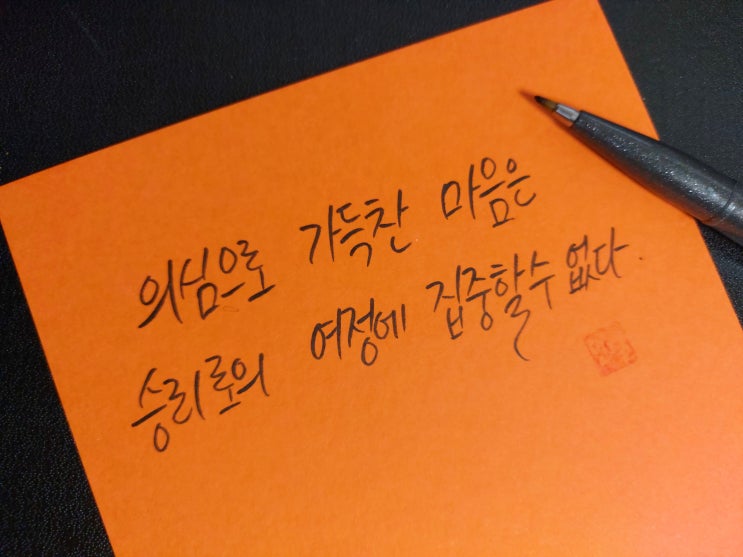 의심으로 가득찬 마음은
승리로의 여정에 집중할수 없다.